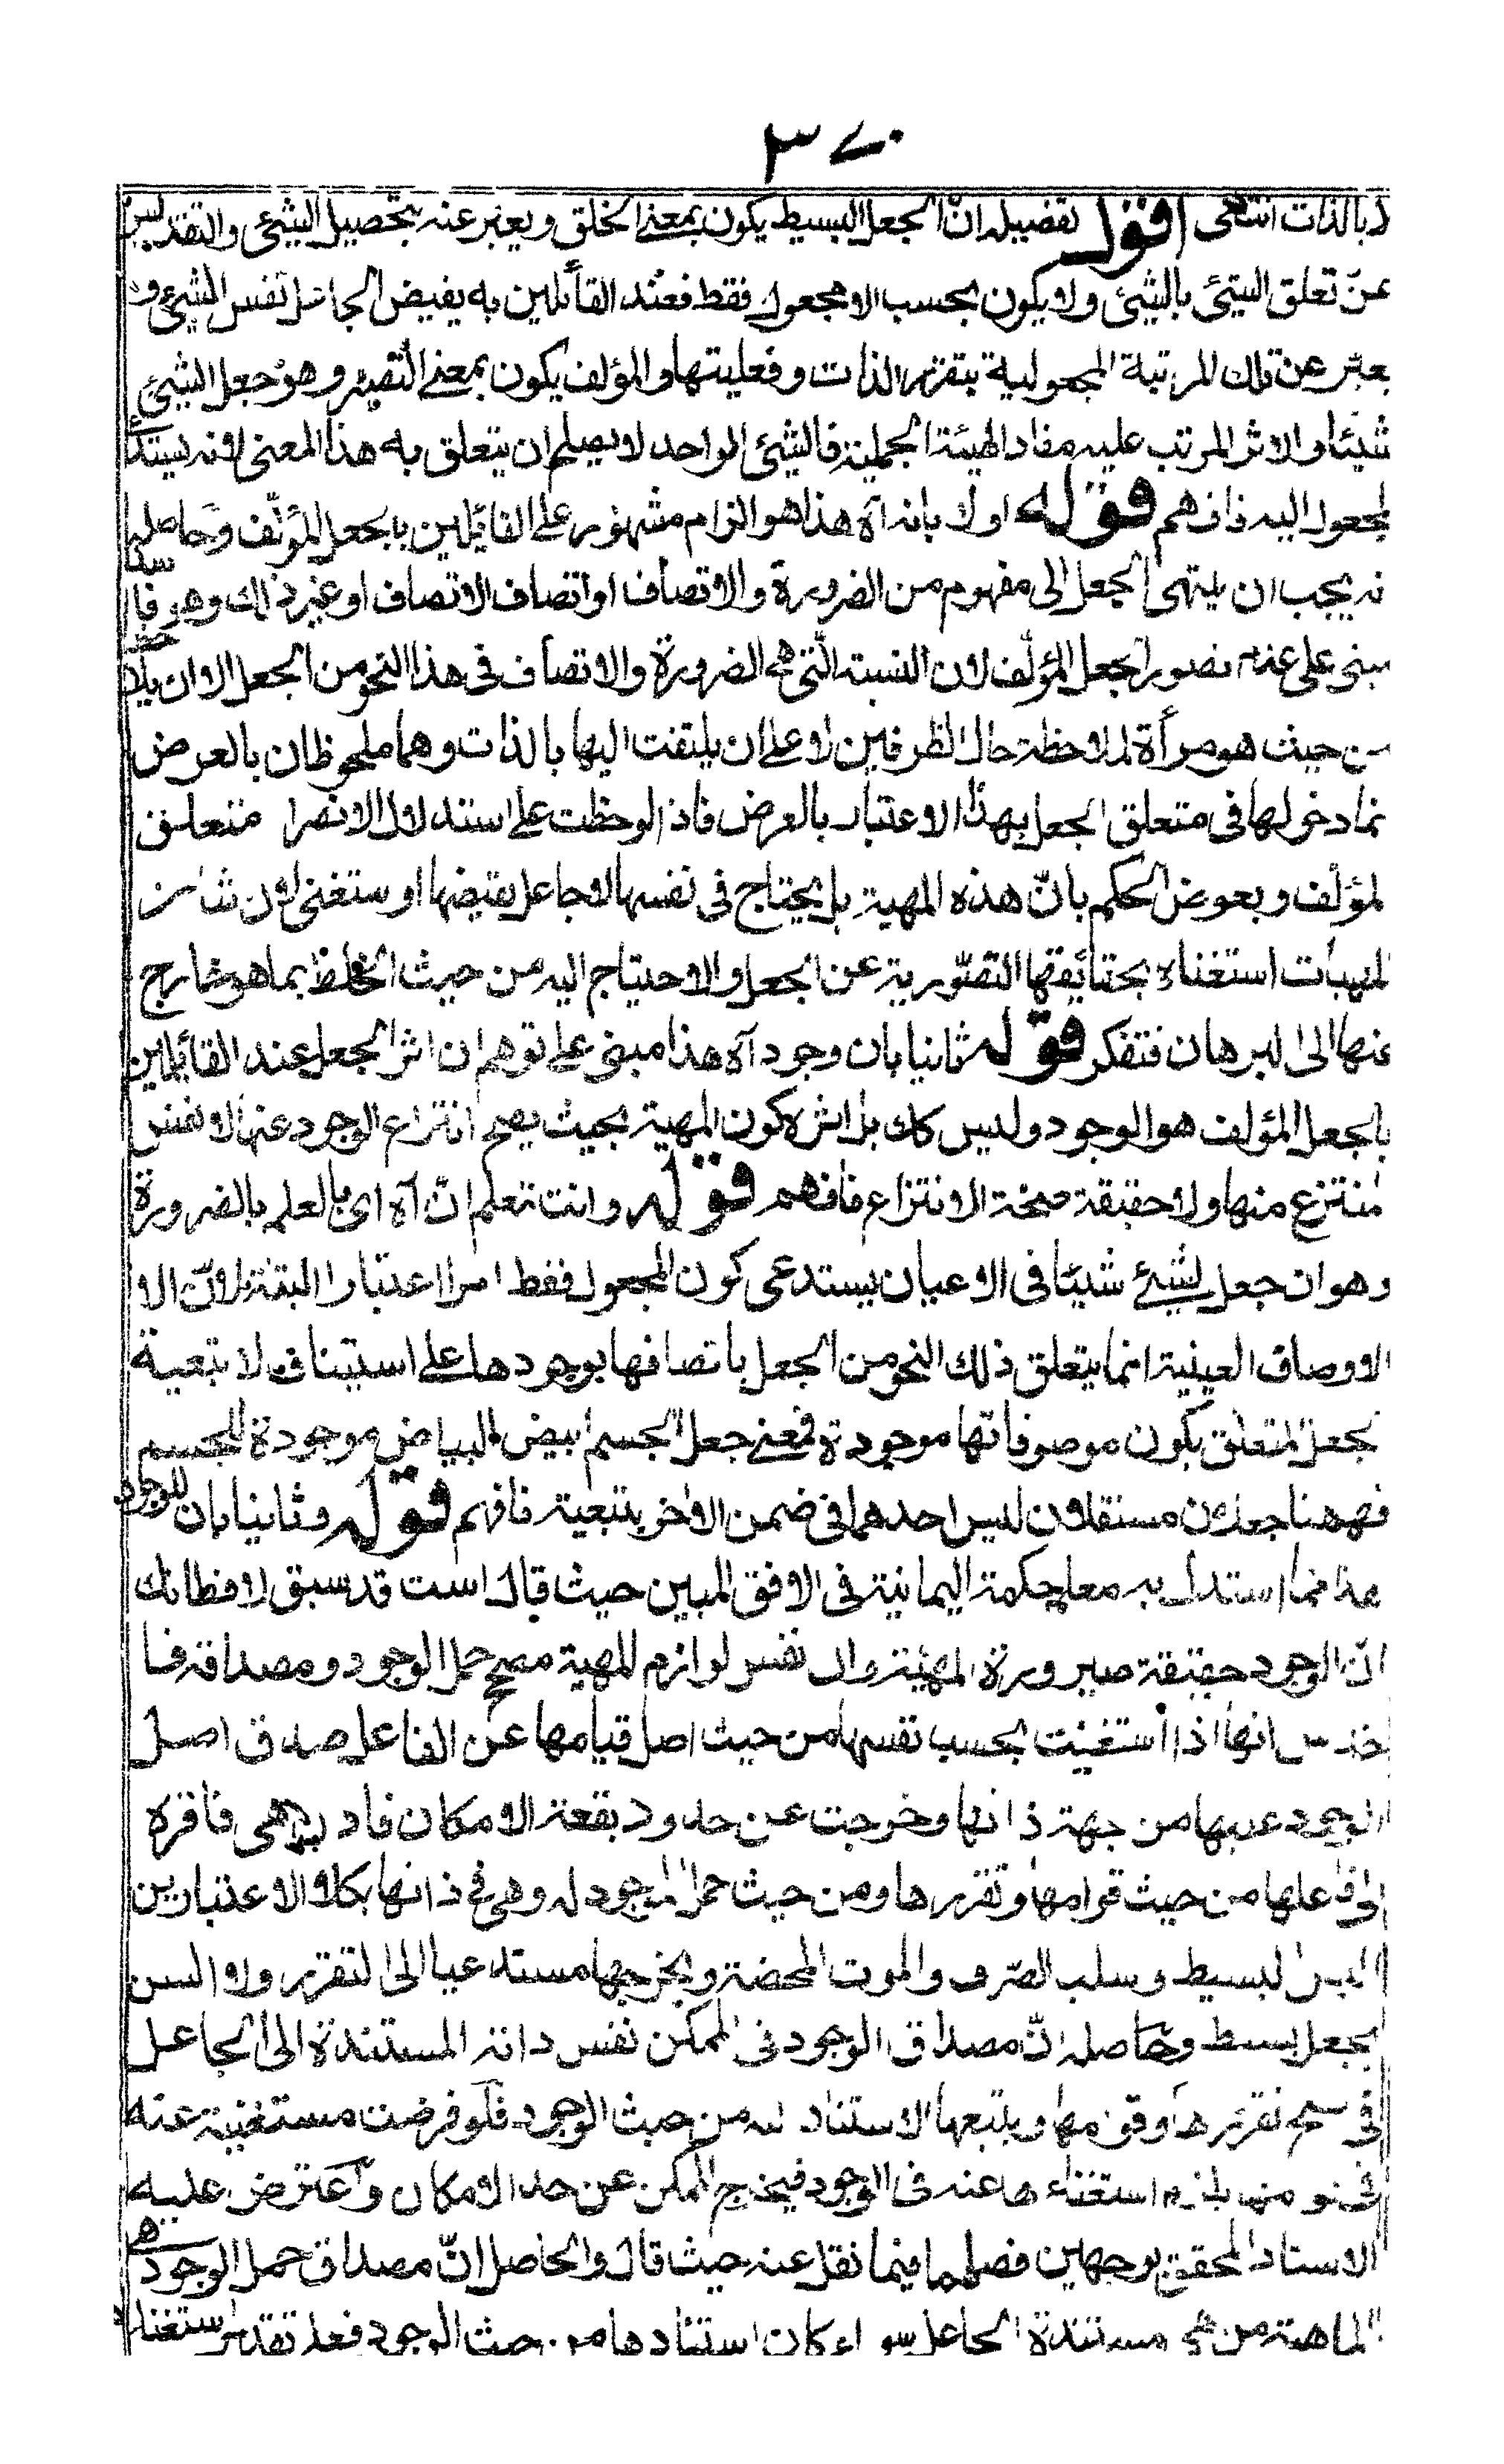 ٣٧٠
بالذات انتهى اقول تفصيله ان الجعل البسيط يكون بمعنى الخلق ويعبر عنه بتحصيل الشيئ والتقديس
عن تعلق الشيئ بالشيئ ولا يكون بحسب الا مجعول فقط فعند القائلين به يفيض الجاعل نفس الشيئ و
يعبر عن تلك المرتبة المجعولية بتقرير الذات وفعليتها والمؤلف يكون بمعنى التصيير وهو جعل الشيئ
شيئا والاثر المرتب عليه مفاد الهيئة الحملية فالشيئ الواحد لا يصلح ان يتعلق به هذا المعنى لانه يستد
المجعول اليه فافهم قوله اولا بانه آه هذا هو الزام مشهور على القائلين بالجعل المؤلف وحاصله
نه يجب ان ينتهى الجعل الى مفهوم من الضرورة والاتصاف او اتصاف الاتصاف او غير ذلك وهو فا
مبنى على عدم تصور الجعل المؤلف لان النسبة التى هى الضرورة والاتصاف فى هذا النحو من الجعل الاول
من حيث هو مرأة لملاحظة حال الطرفين لا على ان يلتفت اليها بالذات وهما ملحوظان بالعرض
نما دخولها فى متعلق الجعل بهذا الاعتبار بالعرض فاذا لوحظت على استدلال الانصرا متعلق
لمؤلف ويعوض الحكم بان هذه المهية بل يحتاج فى نفسها الا جاعل يقيضها او ستغنى لان شان
المهيات استغناء بحتائقها التصورية عن الجعل والاحتياج اليه من حيث الخلط بما هو خارج
عنها الى البرهان فتفكر قوله ثانيا بان وجود آه هذا مبنى على توهم ان اثر الجعل عند القائلين
بالجعل المؤلف هو الوجود وليس كك بل اثره كون المهية بحيث يصح انتزاع الوجود عنها لا نفس
منتزع منها ولا حقيقة صحة الانتزاع فافهم قوله وانت تعلم ان آه اى بالعلم بالضرورة
وهو ان جعل لشيئ شيئا فى الاعيان يستدعى كون المجعول فقط امرا اعتبارا البتة لان الا
الاوصاف العينية انما يتعلق ذلك النحو من الجعل باتصافها بوجودها على استيناف لا بتعية
بجعل المتعلق بكون موصوفاتها موجودة فمعنى جعل الجسم ابيض البياض موجودة للجسم
فههنا جعلان مستقلان ليس احدهما فى ضمن الاخر بتبعية فافهم قوله وثانيا بان للوجود
هذا مما استدل به معلم حكمة اليمانية فى الافق المبين حيث قال است قد سبق لافطانك
ان الوجود حقيقة صيرورة المهية وان نفس لوازم المهية مصح حمل الوجود ومصداقه فا
خدس انها اذا استغنيت بحسب نفسها من حيث اصل قيامها عن الفاعل صدق اصل
الوجود عليها من جهة ذاتها وخرجت عن حدود بقعة الامكان فاد هى فاقره
الى فاعلها من حيث قوامها وتقررها ومن حيث حمل الموجود له وهى فى ذاتها بكلا الاعتبارين
البسيط وسلب الصرف والموت المحضة ويخرجها مستدعيا الى التقرير ولا السن
بجعل بسيط وحاصله ان مصداق الوجود فى الممكن نفس ذاته المستندة الى الجاعل
فى تقريرها وقومها ويتبعها الاستناد له من حيث الوجود فلو فرضت مستغنية عنه
فى نحو منها يلزم استغناءها عنه فى الوجود فيخرج الممكن عن حد الامكان واعترض عليه
الاستاد المحقق بوجهين فصلهما فيما نقل عنه حيث قال والحاصل ان مصداق حمل الوجود هى
الماهية من هى مستندة الجاعل سواء كان استنادها من حيث الوجود فعلى تقدير استغنا